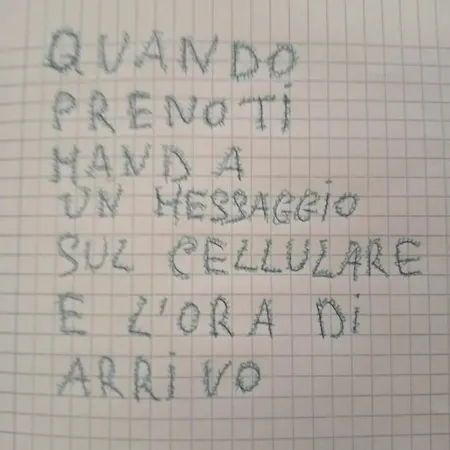 QUANDO
PRENOTI
MANDA
UN MESSAGGIO
SUL CELLULARE
E L'ORA DI
ARRIVO